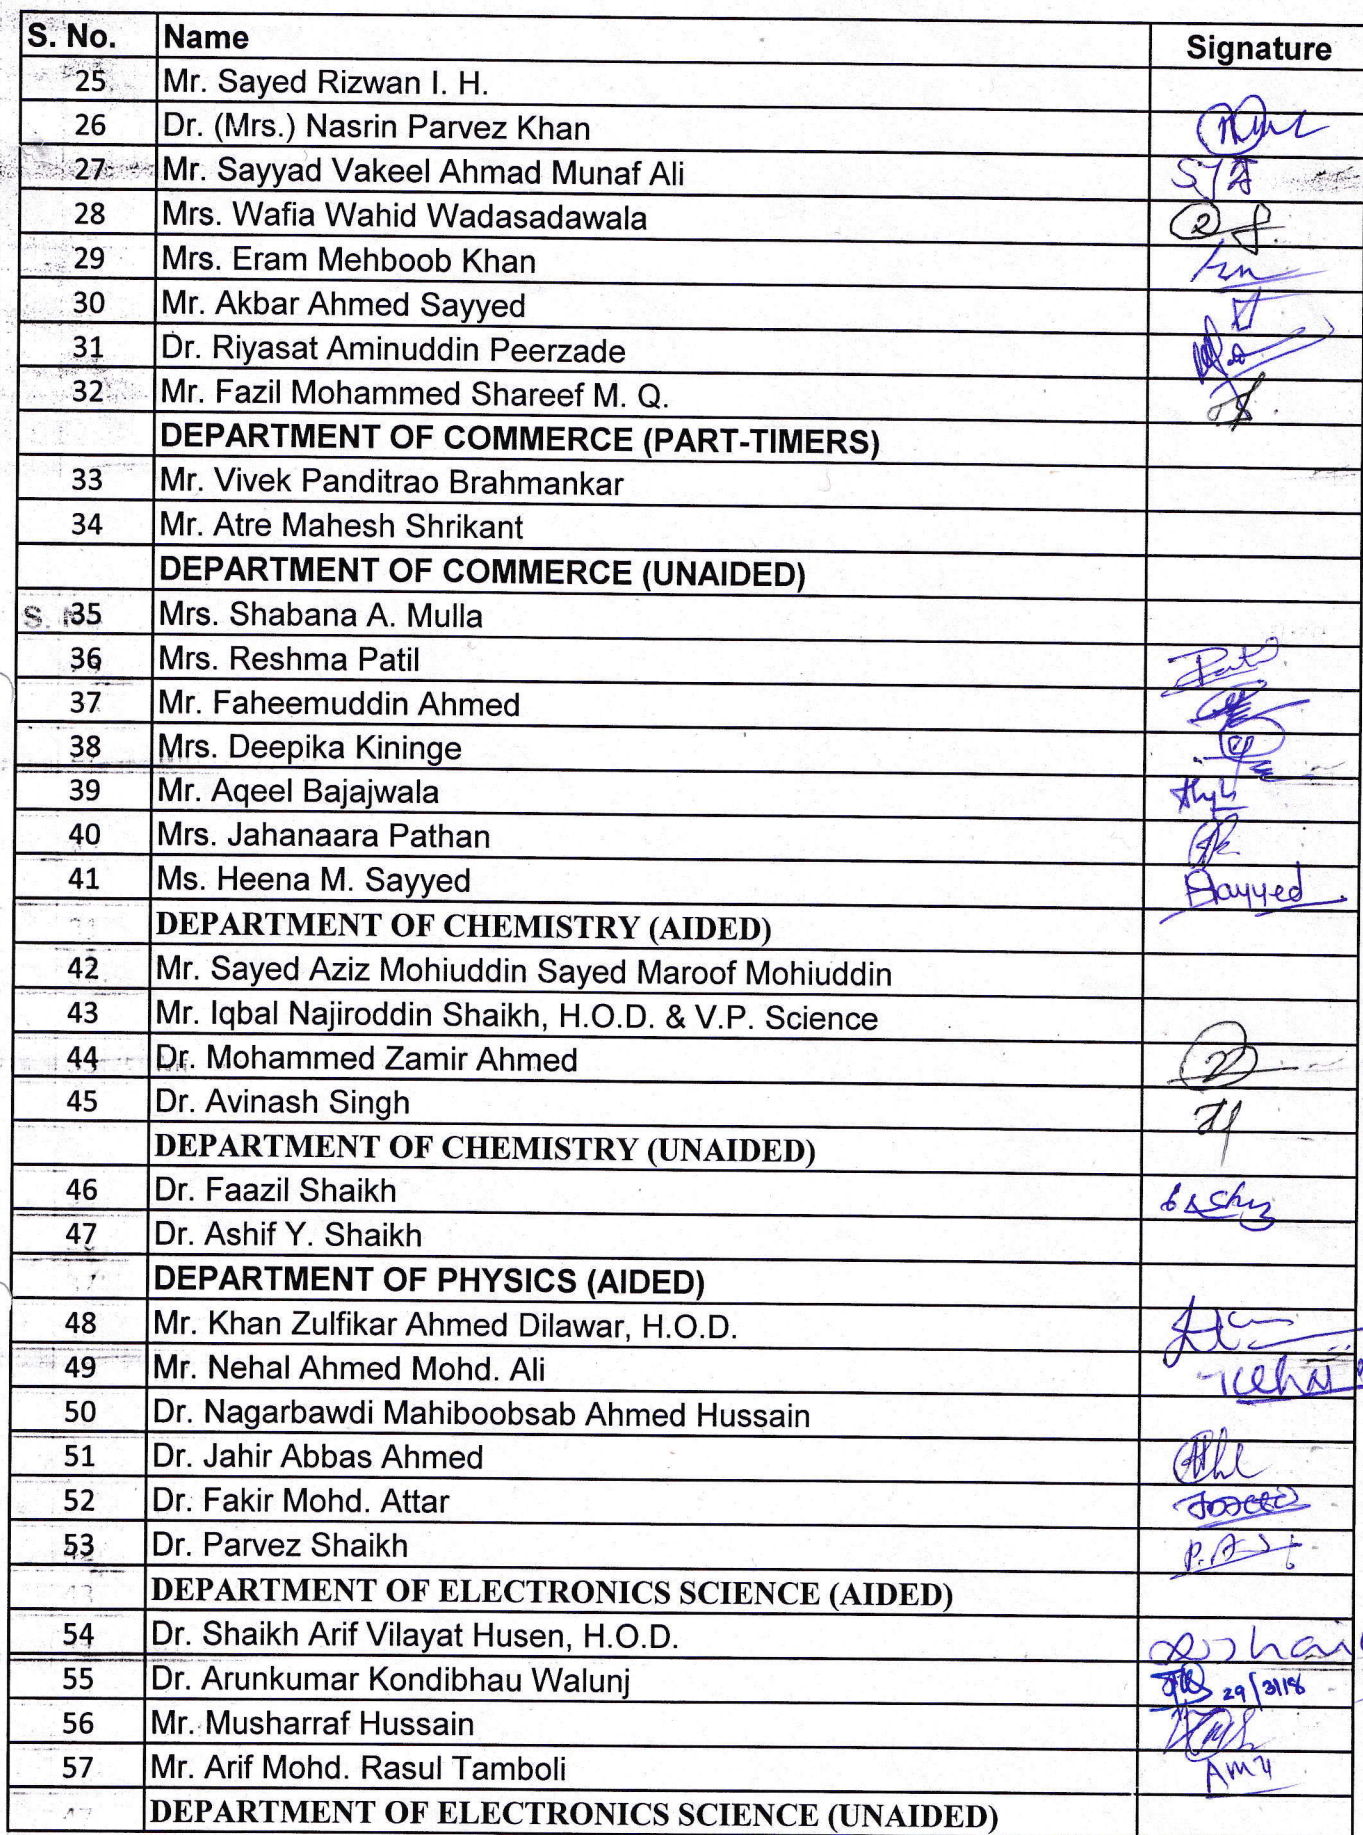 S. No. Name Signature
25 Mr. Sayed Rizwan I. H.
26 Dr. (Mrs.) Nasrin Parvez Khan
27 Mr. Sayyad Vakeel Ahmad Munaf Ali
28 Mrs. Wafia Wahid Wadasadawala
29 Mrs. Eram Mehboob Khan
30 Mr. Akbar Ahmed Sayyed
31 Dr. Riyasat Aminuddin Peerzade
32 Mr. Fazil Mohammed Shareef M. Q.
DEPARTMENT OF COMMERCE (PART-TIMERS)
33 Mr. Vivek Panditrao Brahmankar
34 Mr. Atre Mahesh Shrikant
DEPARTMENT OF COMMERCE (UNAIDED)
35 Mrs. Shabana A. Mulla
36 Mrs. Reshma Patil
37 Mr. Faheemuddin Ahmed
38 Mrs. Deepika Kininge
39 Mr. Aqeel Bajajwala
40 Mrs. Jahanaara Pathan
41 Ms. Heena M. Sayyed
DEPARTMENT OF CHEMISTRY (AIDED)
42 Mr. Sayed Aziz Mohiuddin Sayed Maroof Mohiuddin
43 Mr. Iqbal Najiroddin Shaikh, H.O.D. & V.P. Science
44 Dr. Mohammed Zamir Ahmed
45 Dr. Avinash Singh
DEPARTMENT OF CHEMISTRY (UNAIDED)
46 Dr. Faazil Shaikh
47 Dr. Ashif Y. Shaikh
DEPARTMENT OF PHYSICS (AIDED)
48 Mr. Khan Zulfikar Ahmed Dilawar, H.O.D.
49 Mr. Nehal Ahmed Mohd. Ali
50 Dr. Nagarbawdi Mahiboobsab Ahmed Hussain
51 Dr. Jahir Abbas Ahmed
52 Dr. Fakir Mohd. Attar
53 Dr. Parvez Shaikh
DEPARTMENT OF ELECTRONICS SCIENCE (AIDED)
54 Dr. Shaikh Arif Vilayat Husen, H.O.D.
55 Dr. Arunkumar Kondibhau Walunj 29/3/18
56 Mr. Musharraf Hussain
57 Mr. Arif Mohd. Rasul Tamboli
DEPARTMENT OF ELECTRONICS SCIENCE (UNAIDED)